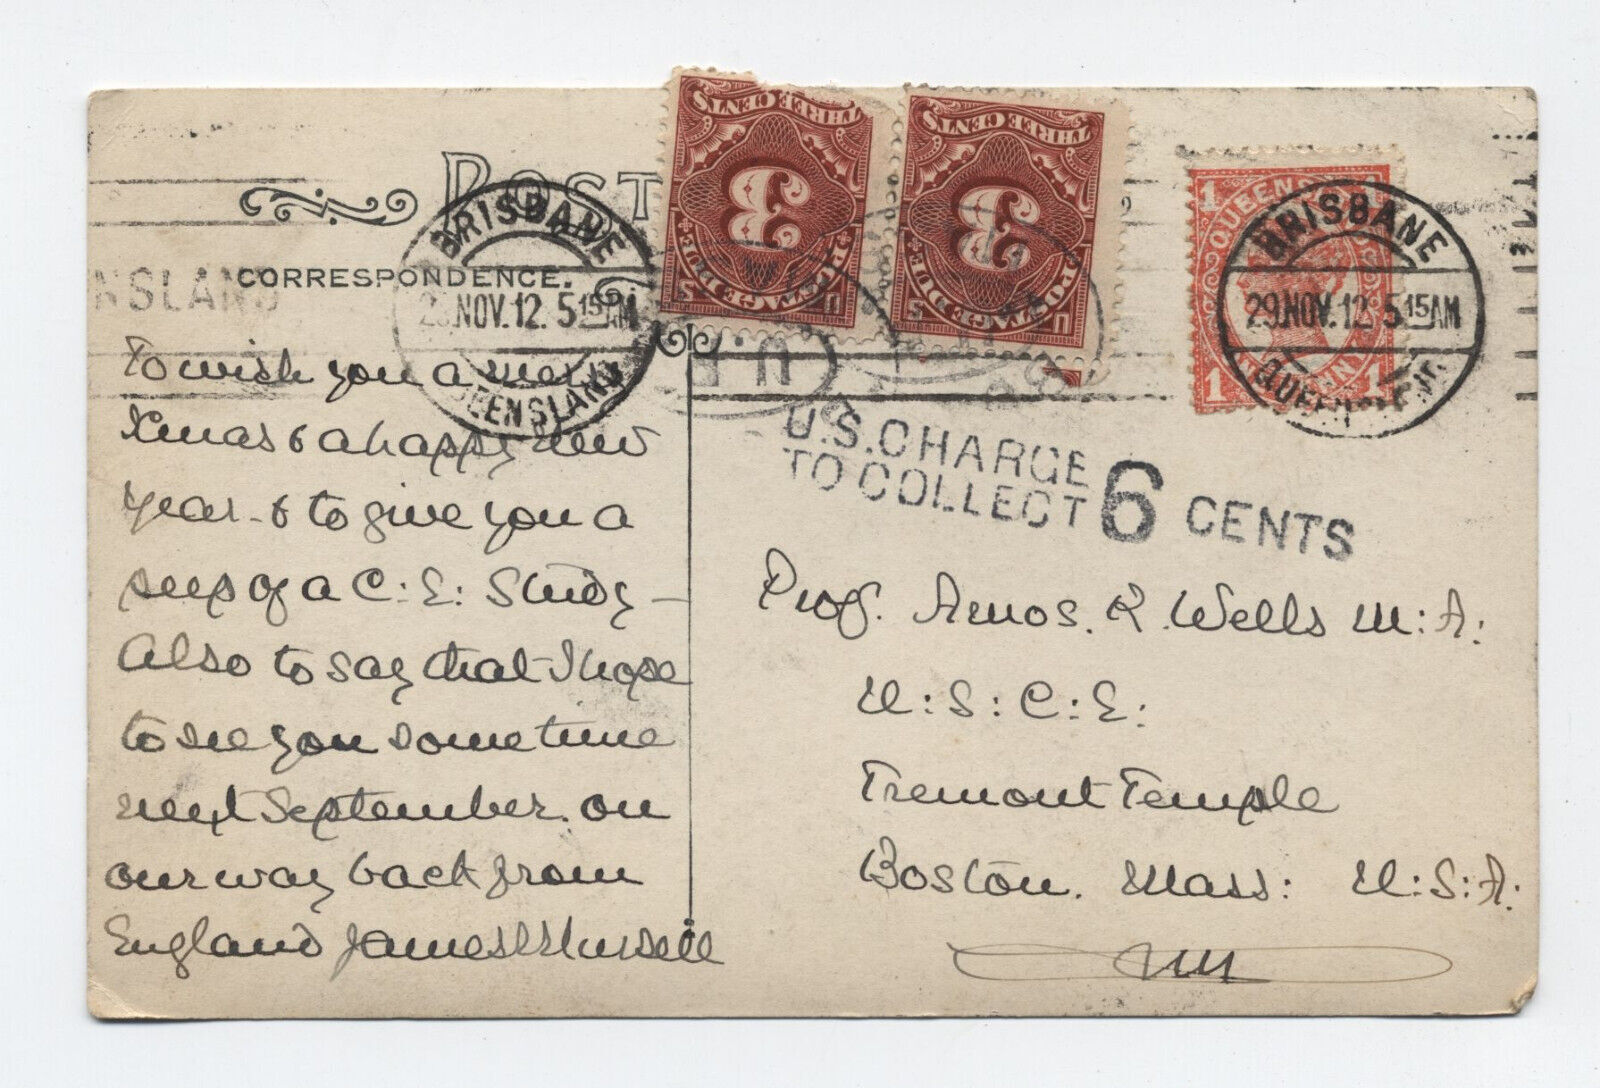 POST
CORRESPONDENCE.
BRISBANE
NOV.12. 5 15AM
QUEENSLAND
NSLAND
THREE CENTS
3
POSTAGE DUE
U S
THREE CENTS
3
POSTAGE DUE
U S
QUEENSL
1
1 ONE PENNY 1
BRISBANE
29.NOV.12. 5 15AM
U.S.CHARGE
TO COLLECT 6 CENTS
To wish you a merry
Xmas & a happy new
year - & to give you a
peep of a C: E: Study -
Also to say that I hope
to see you some time
next September. on
our way back from
England James
Prof. Amos. R. Wells M: A:
U: S: C: E:
Tremont Temple
Boston. Mass: U: S: A: